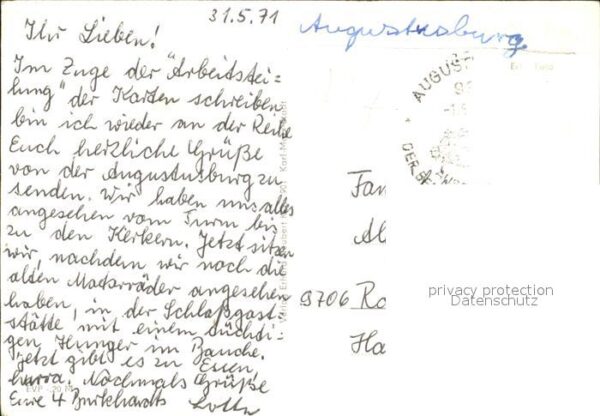 31.5.71
Augustusburg
Ihr Lieben!
Im Zuge der "Arbeitstei=
lung" der Karten schreiben
bin ich wieder an der Reihe
Euch herzliche Grüße
von der Augustusburg zu
senden. Wir haben uns alles
angesehen vom Turm bis
zu den Kerkern. Jetzt sitzen
wir, nachdem wir noch die
alten Motorräder angesehen
haben, in der Schloßgast=
stätte mit einem tüchti=
gen Hunger im Bauche.
Jetzt gibt es zu Essen,
hurra. Nochmals Grüße
Eure 4 Burkhardts Lotte
EVP -,20 M
AUGUST
DER
Fam
9706 Ro
Ha
privacy protection
Datenschutz